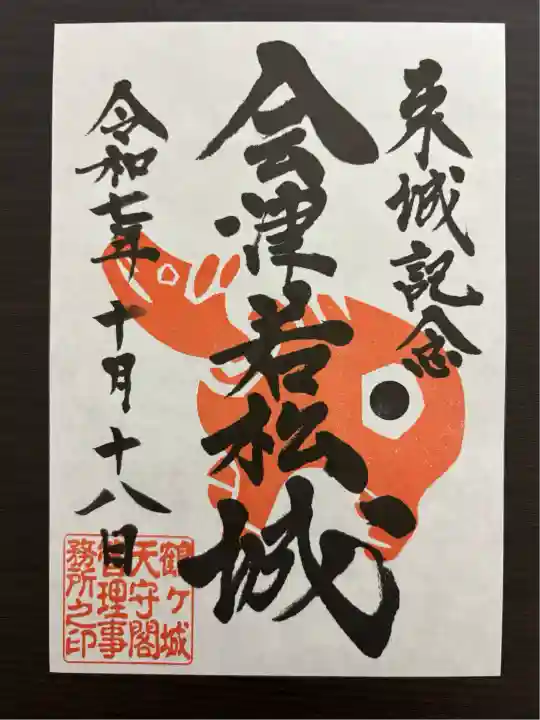 来城記念
会津若松城
令和七年十月十八日
鶴ヶ城
天守閣
管理事
務所之印